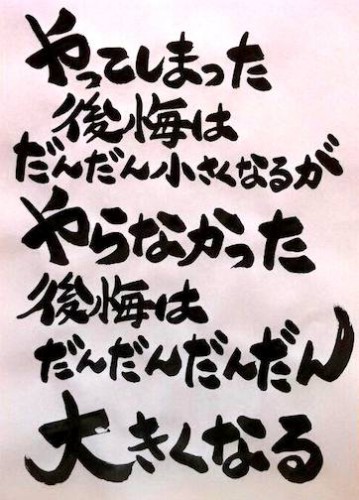 やってしまった
後悔は
だんだん小さくなるが
やらなかった
後悔は
だんだんだんだん
大きくなる